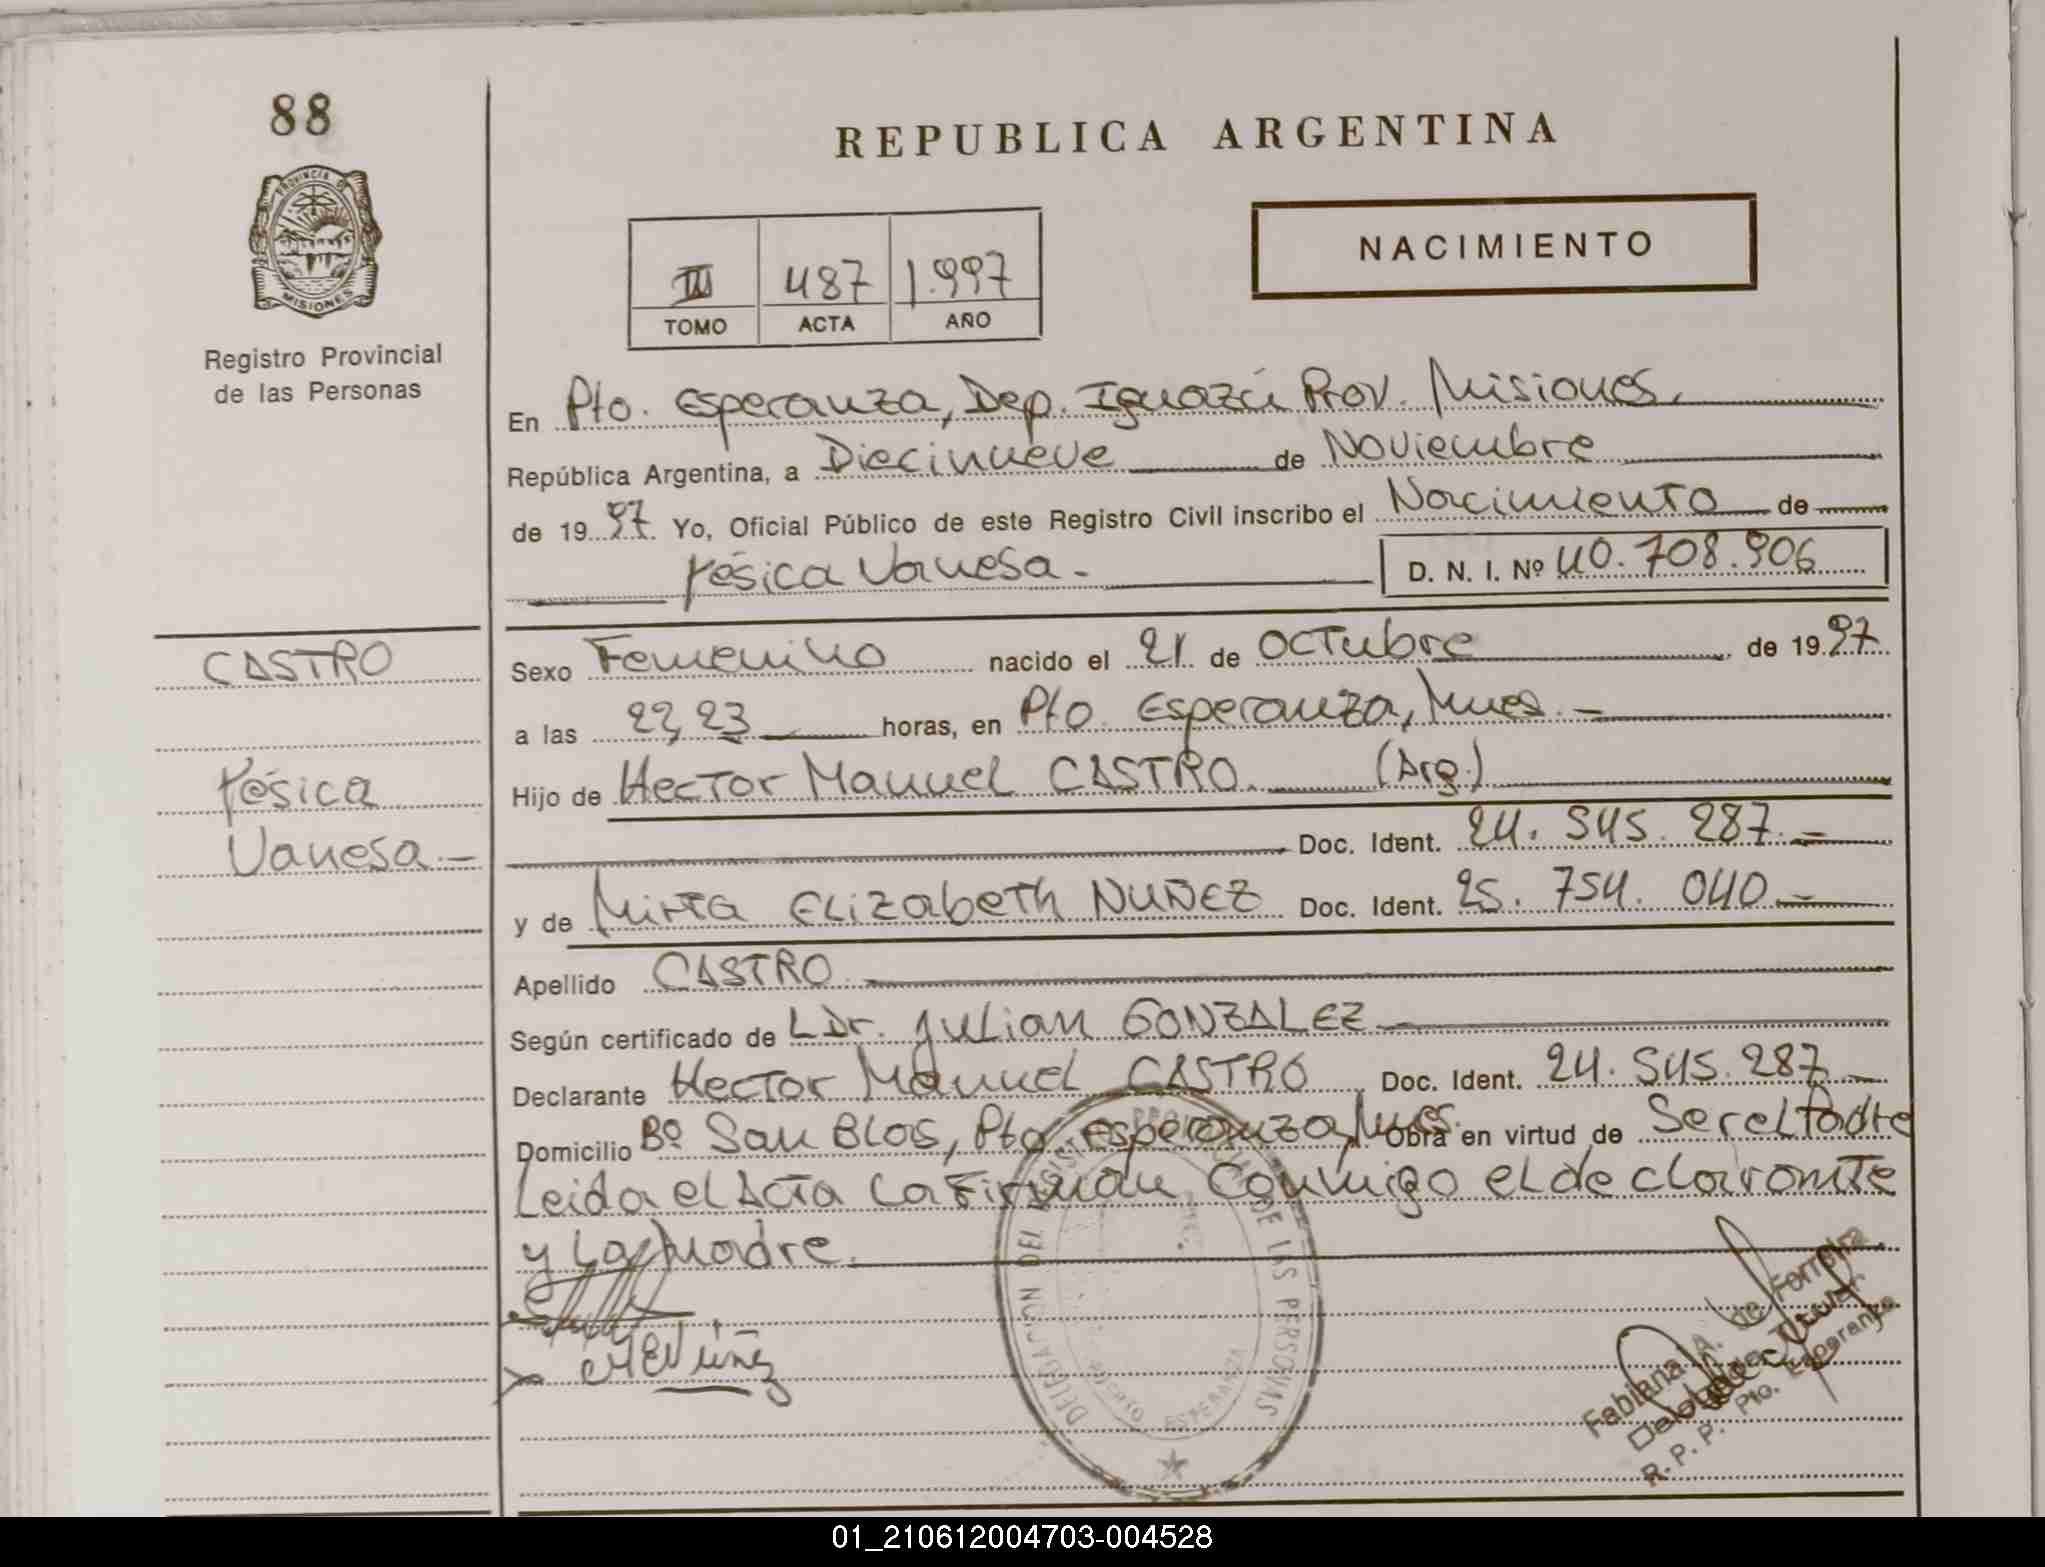 88
PROVINCIA DE
MISIONES
Registro Provincial
de las Personas
REPUBLICA ARGENTINA
NACIMIENTO
III 487 1.997
TOMO ACTA AÑO
En Pto. Esperanza, Dep. Iguazú Prov. Misiones.
República Argentina, a Diecinueve de Noviembre
de 1997 Yo, Oficial Público de este Registro Civil inscribo el Nacimiento de
Yésica Vanesa.- D. N. I. Nº 40.708.906
CASTRO
Yésica
Vanesa.-
Sexo Femenino nacido el 21 de Octubre de 1997
a las 22,23 horas, en Pto. Esperanza, Mnes.-
Hijo de Hector Manuel CASTRO. (Arg.)
Doc. Ident. 24.545.287.-
y de Mirta Elizabeth NUÑEZ Doc. Ident. 25.754.040.-
Apellido CASTRO
Según certificado de L Dr. Julian GONZALEZ
Declarante Hector Manuel CASTRO Doc. Ident. 24.545.287
Domicilio Bº San Blas, Pto. Esperanza, Mnes. Obra en virtud de Ser el Padre
Leida el Acta La Firman Conmigo el declarante
y La Madre.
MENúñez
DELEGACION DEL REGISTRO PROVINCIAL DE LAS PERSONAS
PUERTO ESPERANZA
Fabiana A. de Ferreira
Delegada Titular
R. P. P. Pto. Esperanza
01_210612004703-004528